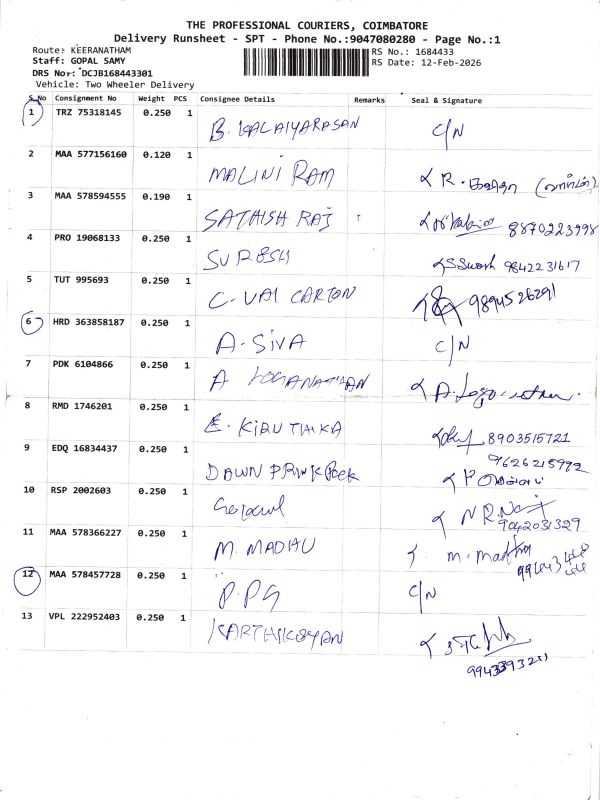 THE PROFESSIONAL COURIERS, COIMBATORE
Delivery Runsheet - SPT - Phone No.:9047080280 - Page No.:1
Route: KEERANATHAM RS No.: 1684433
Staff: GOPAL SAMY RS Date: 12-Feb-2026
DRS No.: DCJB168443301
Vehicle: Two Wheeler Delivery
S.No Consignment No Weight PCS Consignee Details Remarks Seal & Signature
1 TRZ 75318145 0.250 1 B. KALAIYARASAN C/N
2 MAA 577156160 0.120 1 MALINI RAM R.
3 MAA 578594555 0.190 1 SATHISH RAJ 8870223998
4 PRO 19068133 0.250 1 SURESH S Suresh 9842231617
5 TUT 995693 0.250 1 C. VAI CARTON 9894526291
6 HRD 363858187 0.250 1 A. SIVA C/N
7 PDK 6104866 0.250 1 A LOGANATHAN A. Loganathan
8 RMD 1746201 0.250 1 E. KIRUTHIKA 8903515721
9 EDQ 16834437 0.250 1 DAWN 9626215992
10 RSP 2002603 0.250 1 Gokul N R. 9042031329
11 MAA 578366227 0.250 1 M. MADHU M. Madhu
12 MAA 578457728 0.250 1 P.PG C/N
13 VPL 222952403 0.250 1 KARTHIKEYAN